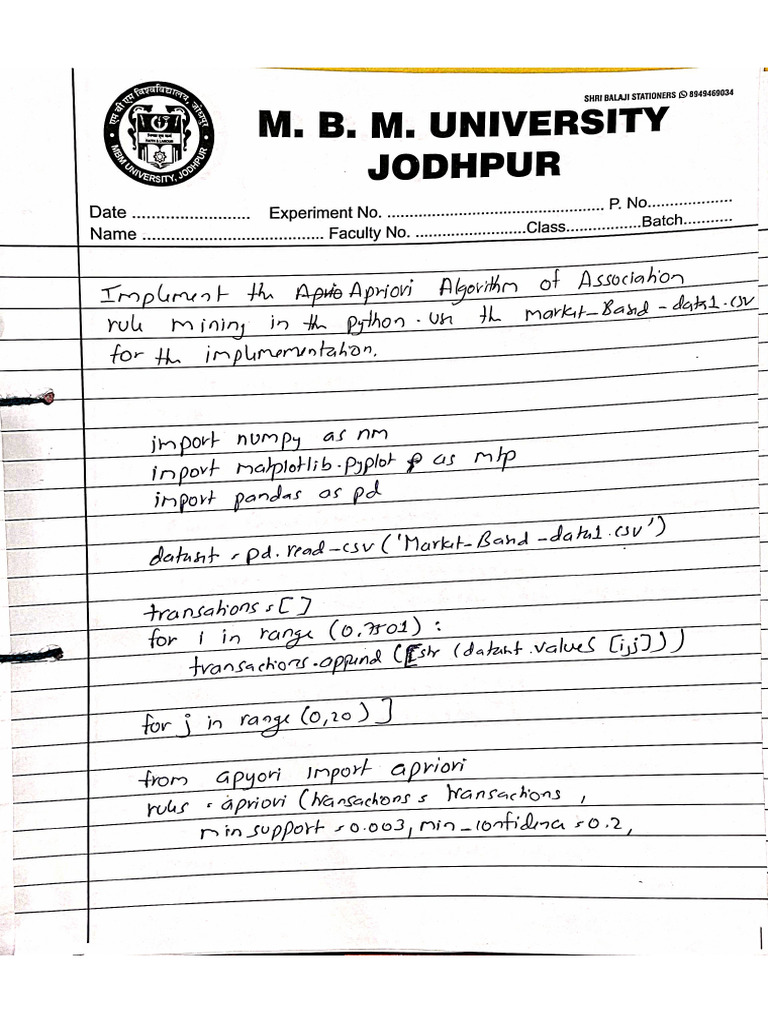 SHRI BALAJI STATIONERS 8949469034
एम बी एम विश्वविद्यालय, जोधपुर
MBM UNIVERSITY, JODHPUR
M. B. M. UNIVERSITY
JODHPUR
Date .......................... Experiment No. ................................................ P. No...................
Name ........................................ Faculty No. ........................Class.................Batch...........
Implement the Aprio Apriori Algorithm of Association
rule mining in the python. Use the market_Based_data1.csv
for the implemementation.
import numpy as nm
import matplotlib.pyplot p as mtp
import pandas as pd
dataset = pd.read_csv('Market_Based_data1.csv')
transations = []
for i in range (0,7501) :
transactions.append ([str (dataset.values [i,j]))
for j in range (0,20) ]
from apyori import apriori
rules = apriori (transactions = transactions ,
min support = 0.003, min_confidence = 0.2,